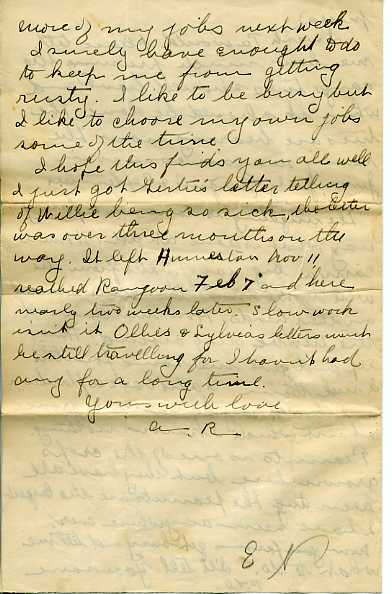 more of my jobs next week
I surely have enought to do
to keep me from getting
rusty. I like to be busy but
I like to choose my own jobs
some of the time.
I hope this finds you all well
I just got Gertie's letter telling
of Willie being so sick, the letter
was over three months on the
way. It left Humeston Nov 11
reached Rangoon Feb 7 and here
nearly two weeks later. Slow work
isn't it Ollies & Sylvias letters must
be still travelling for I havn't had
any for a long time.
Yours with love
A. R.
E